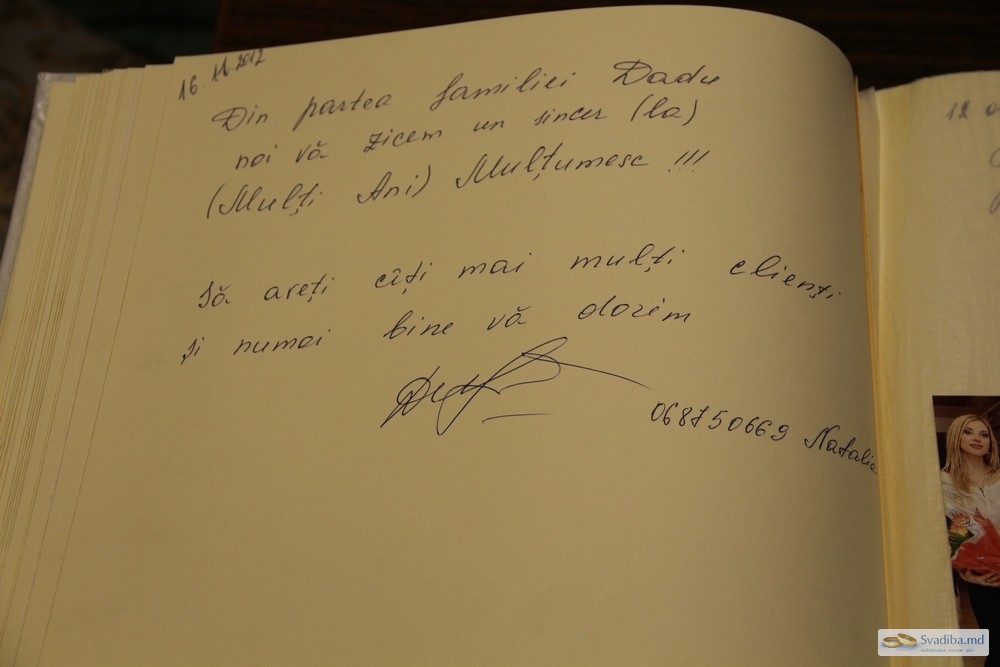 16.11.2012
Din partea familiei Dadu
noi vă zicem un sincer (la)
(Mulți Ani) Mulțumesc !!!
Să aveți cîți mai mulți clienți
și numai bine vă dorim
068750669 Natalia
12
Svadiba.md